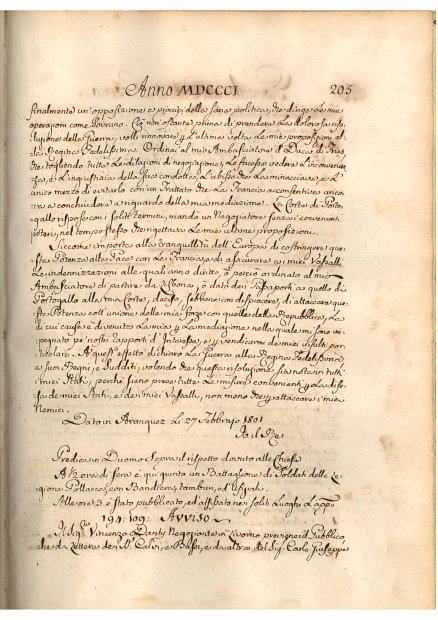 Anno MDCCCI 205
finalmente un'opposizione a' principj della sana politica, che dirige le mie
operazioni come Sovrano. Ciò non ostante prima di prendere la dolorosa riso
luzione della Guerra, volli rinnovare per l'ultima volta le mie proposizioni al
la Regina Fedelissima. Ordinai al mio Ambasciatore il Duca di Frias
che togliendo tutte le dilazioni di negoziazione, le facesse vedere l'inconvenien
za, e l'ingiustizia della sua condotta, l'abisso che la minacciava, e l'
unico mezzo di evitarlo con un Trattato che la Francia acconsentiva anco
ra a conchiudere a riguardo della mia mediazione. La Corte di Porto
gallo rispose con i soliti termini, mandò un Negoziatore senza i convenienti
poteri, nel tempo stesso che rigettava le mie ultime proposizioni.
Siccome importa alla tranquillità dell'Europa di costringere que
sta Potenza alla Pace con la Francia, e di assicurare a i miei Vassalli
le indennizzazioni alle quali anno diritto, ò perciò ordinato al mio
Ambasciatore di partire da Lisbona, e ò dato dei Passaporti a quello di
Portogallo alla mia Corte, deciso, sebbene con dispiacere, di attaccare que
sta Potenza coll'unione delle mie forze con quelle della Repubblica, la
di cui causa è divenuta la mia per la mediazione nella quale mi sono im
pegnato pe' nostri rapporti d'Interesse, e per vendicarmi de' miei insulti par
ticolari. A quest'effetto dichiaro la Guerra alla Regina Fedelissima
a suoi Regni, e Sudditi, volendo che questa risoluzione sia nota in tutt'
i miei Stati, perchè siano prese tutte le misure convenienti per la dife
sa de' miei Stati, e dei miei Vassalli, non meno che per attaccare i miei
Nemici.
Dato in Aranquez li 27 Febbrajo 1801
Io il Re
Predica in Duomo sopra il rispetto dovuto alle Chiese
A 1/2 ora di sera è qui giunto un Battaglione di Soldati della Le
gione Pollacca, con Bandiera, tamburi, ed usuali.
Alle ore 3 è stato pubblicato, ed affisso ne' soliti Luoghi
194: 109: Avviso
Il Sig. Vincenzo Dantz Negoziante in Livorno previene il Pubblico,
che da lettera dei SS. Calvi, e Bassi, e da altra del Sig. Carlo Giuseppe